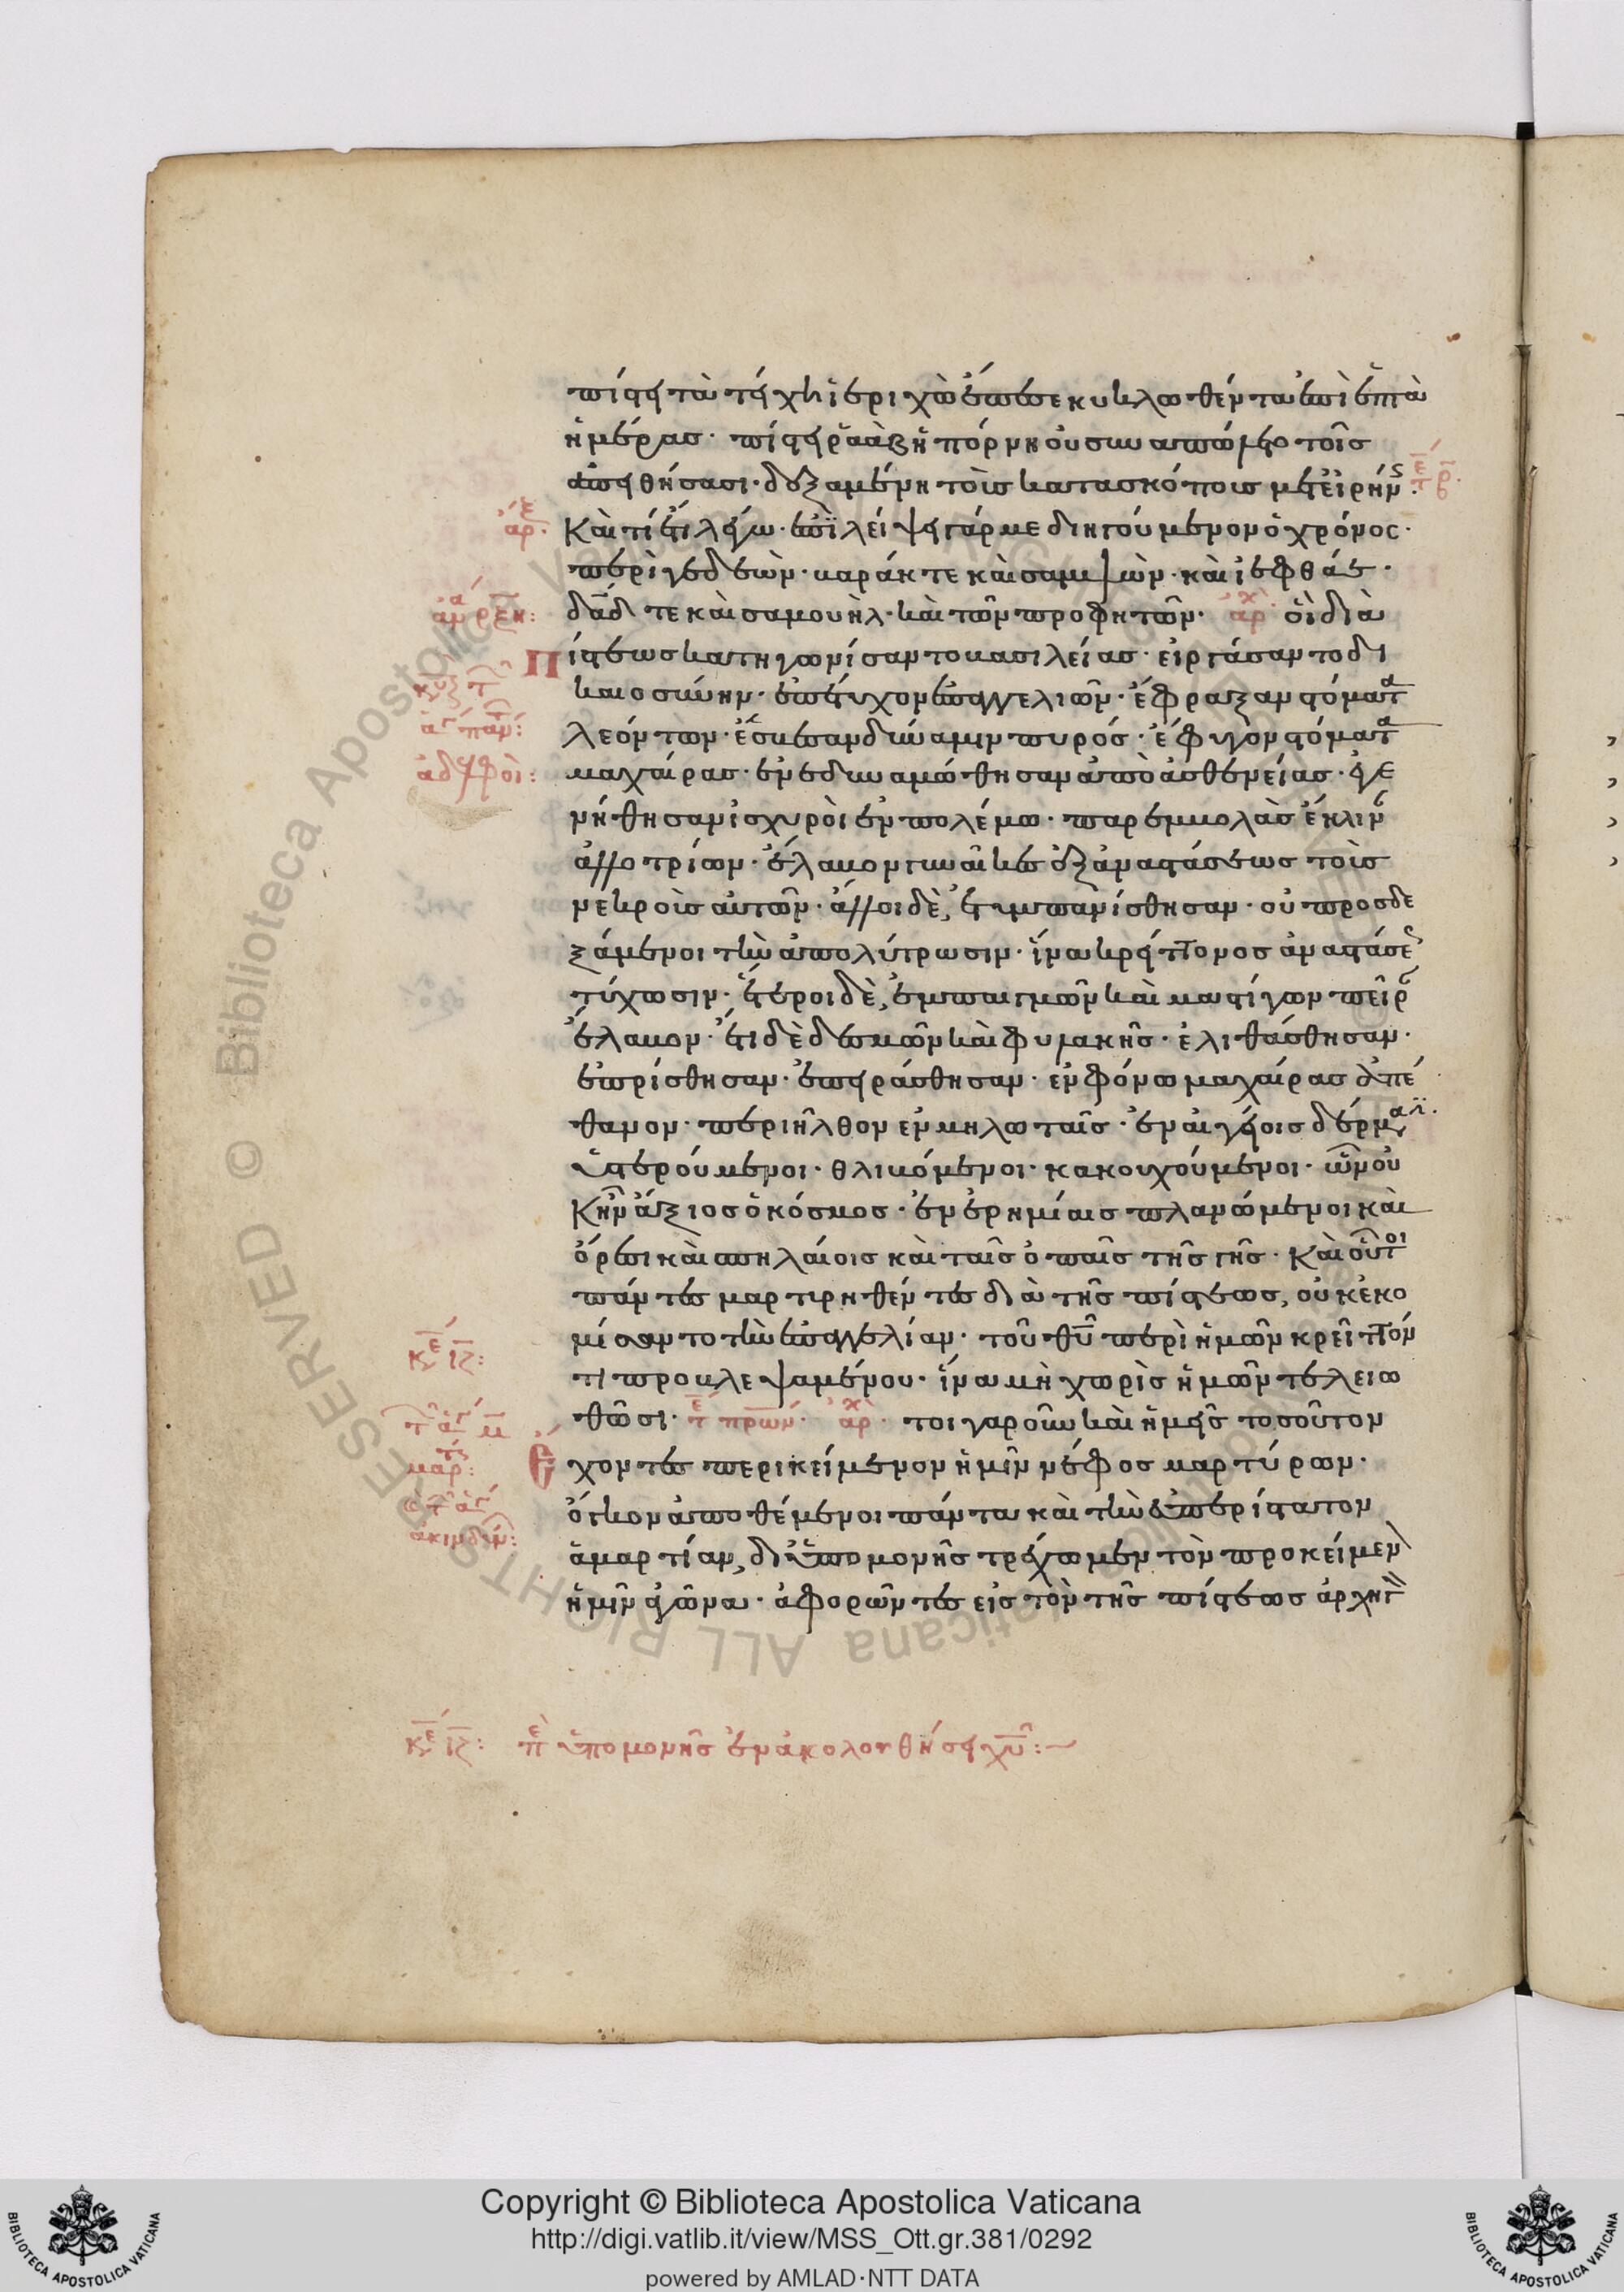 πίστει τὰ τείχη ἱεριχὼ ἔπεσε κυκλωθέντα ἐπὶ ἑπτὰ
ἡμέρας· πίστει ῥαὰβ ἡ πόρνη οὐ συναπώλετο τοῖς
ἀπειθήσασι· δεξαμένη τοὺς κατασκόπους μετ εἰρήν
Καὶ τί ἔτι λέγω· ἐπιλείψει γάρ με διηγούμενον ὁ χρόνος·
περὶ γεδεών· βαράκ τε καὶ σαμψών· καὶ ἰεφθάε·
δαδ τε καὶ σαμουὴλ· καὶ τῶν προφητῶν· ἀρχ οἱ διὰ
Πίστεως κατηγωνίσαντο βασιλείας· εἰργάσαντο δι
καιοσύνην· ἐπέτυχον ἐπαγγελιῶν· ἔφραξαν στόματα
λεόντων· ἔσβεσαν δύναμιν πυρός· ἔφυγον στόματα
μαχαίρας· ἐνεδυναμώθησαν ἀπὸ ἀσθενείας· ἐγε
νήθησαν ἰσχυροὶ ἐν πολέμω· παρεμβολὰς ἔκλιν
ἀλλοτρίων· ἔλαβον γυναῖκες ἐξ ἀναστάσεως τοὺς
νεκροὺς αὐτῶν· ἄλλοι δὲ, ἐτυμπανίσθησαν· οὐ προσδε
ξάμενοι τὴν ἀπολύτρωσιν· ἵνα κρείττονος ἀναστάσε
τύχωσιν· ἕτεροι δὲ, ἐμπαιγμῶν καὶ μαστίγων πεῖρ
ἔλαβον· ἔτι δὲ δεσμῶν καὶ φυλακῆς· ἐλιθάσθησαν·
ἐπρίσθησαν· ἐπειράσθησαν· ἐν φόνω μαχαίρας ἀπέ
θανον· περιῆλθον ἐν μηλωταῖς· ἐν αἰγείοις δέρμα
ὑστερούμενοι· θλιβόμενοι· κακουχούμενοι· ὧν οὐ
Κἦν ἄξιος ὁ κόσμος· ἐν ἐρημίαις πλανώμενοι καὶ
ὄρεσι καὶ σπηλαίοις καὶ ταῖς ὀπαῖς τῆς γῆς· Καὶ οὗτοι
πάντες μαρτιρηθέντες διὰ τῆς πίστεως, οὐκ ἐκο
μίσαντο τὴν ἐπαγγελίαν· τοῦ θυ περὶ ἡμῶν κρεῖττόν
τι προβλεψαμένου· ἵνα μὴ χωρὶς ἡμῶν τελειω
θῶσι· τε πρων· ἀρχ· τοιγαροῦν καὶ ἡμεῖς τοσοῦτον
Ἔχοντες περικείμενον ἡμῖν νέφος μαρτύρων·
ὄγκον ἀποθέμενοι πάντα καὶ τὴν εὐπερίστατον
ἁμαρτίαν, δι ὑπομονῆς τρέχωμεν τὸν προκείμεν
ἡμῖν ἀγῶνα· ἀφορῶντες εἰς τὸν τῆς πίστεως ἀρχηγ
κε ιζ: πε ὑπομονῆς ἐν ἀκολουθήσει χυ:
Copyright © Biblioteca Apostolica Vaticana
http://digi.vatlib.it/view/MSS_Ott.gr.381/0292
powered by AMLAD·NTT DATA